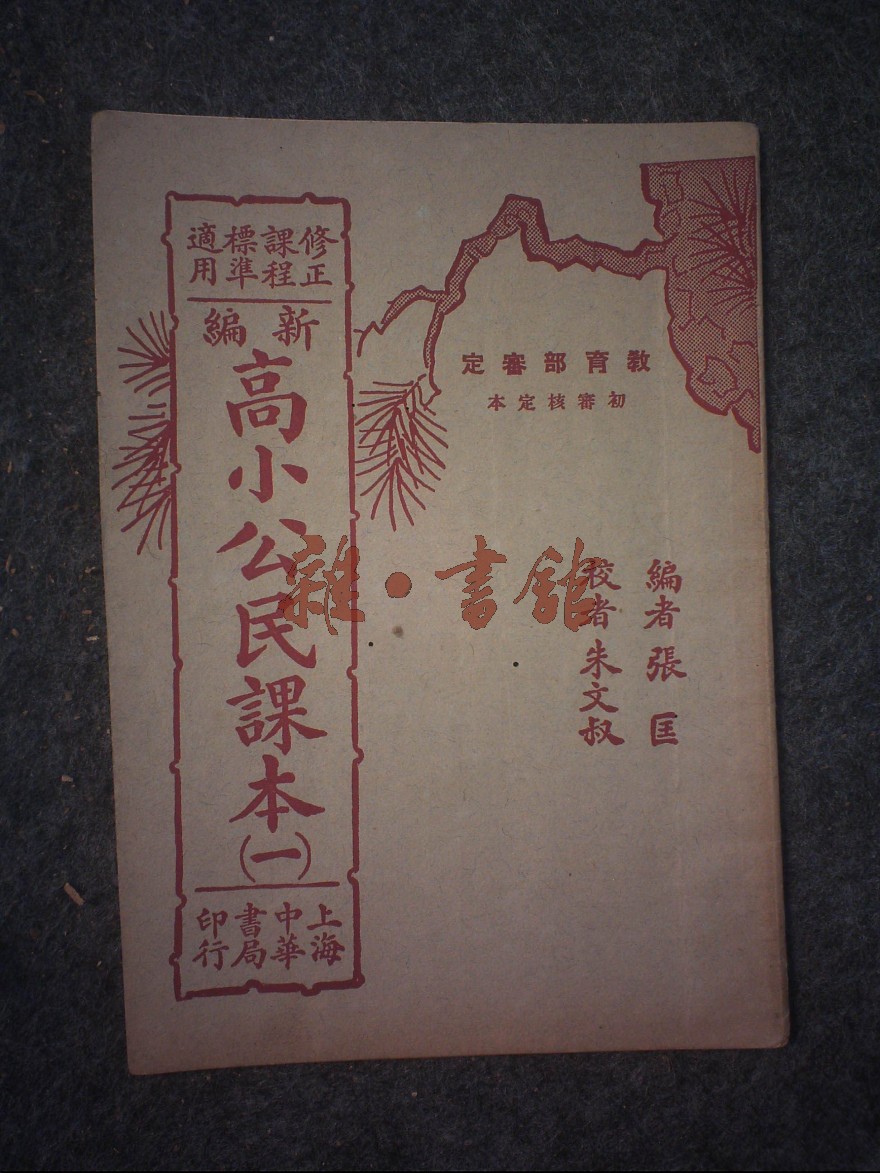 教育部審定
初審核定本
編者 張匡
校者 朱文叔
修正課程標準適用
新編
高小公民課本(一)
上海中華書局印行
雜·書館